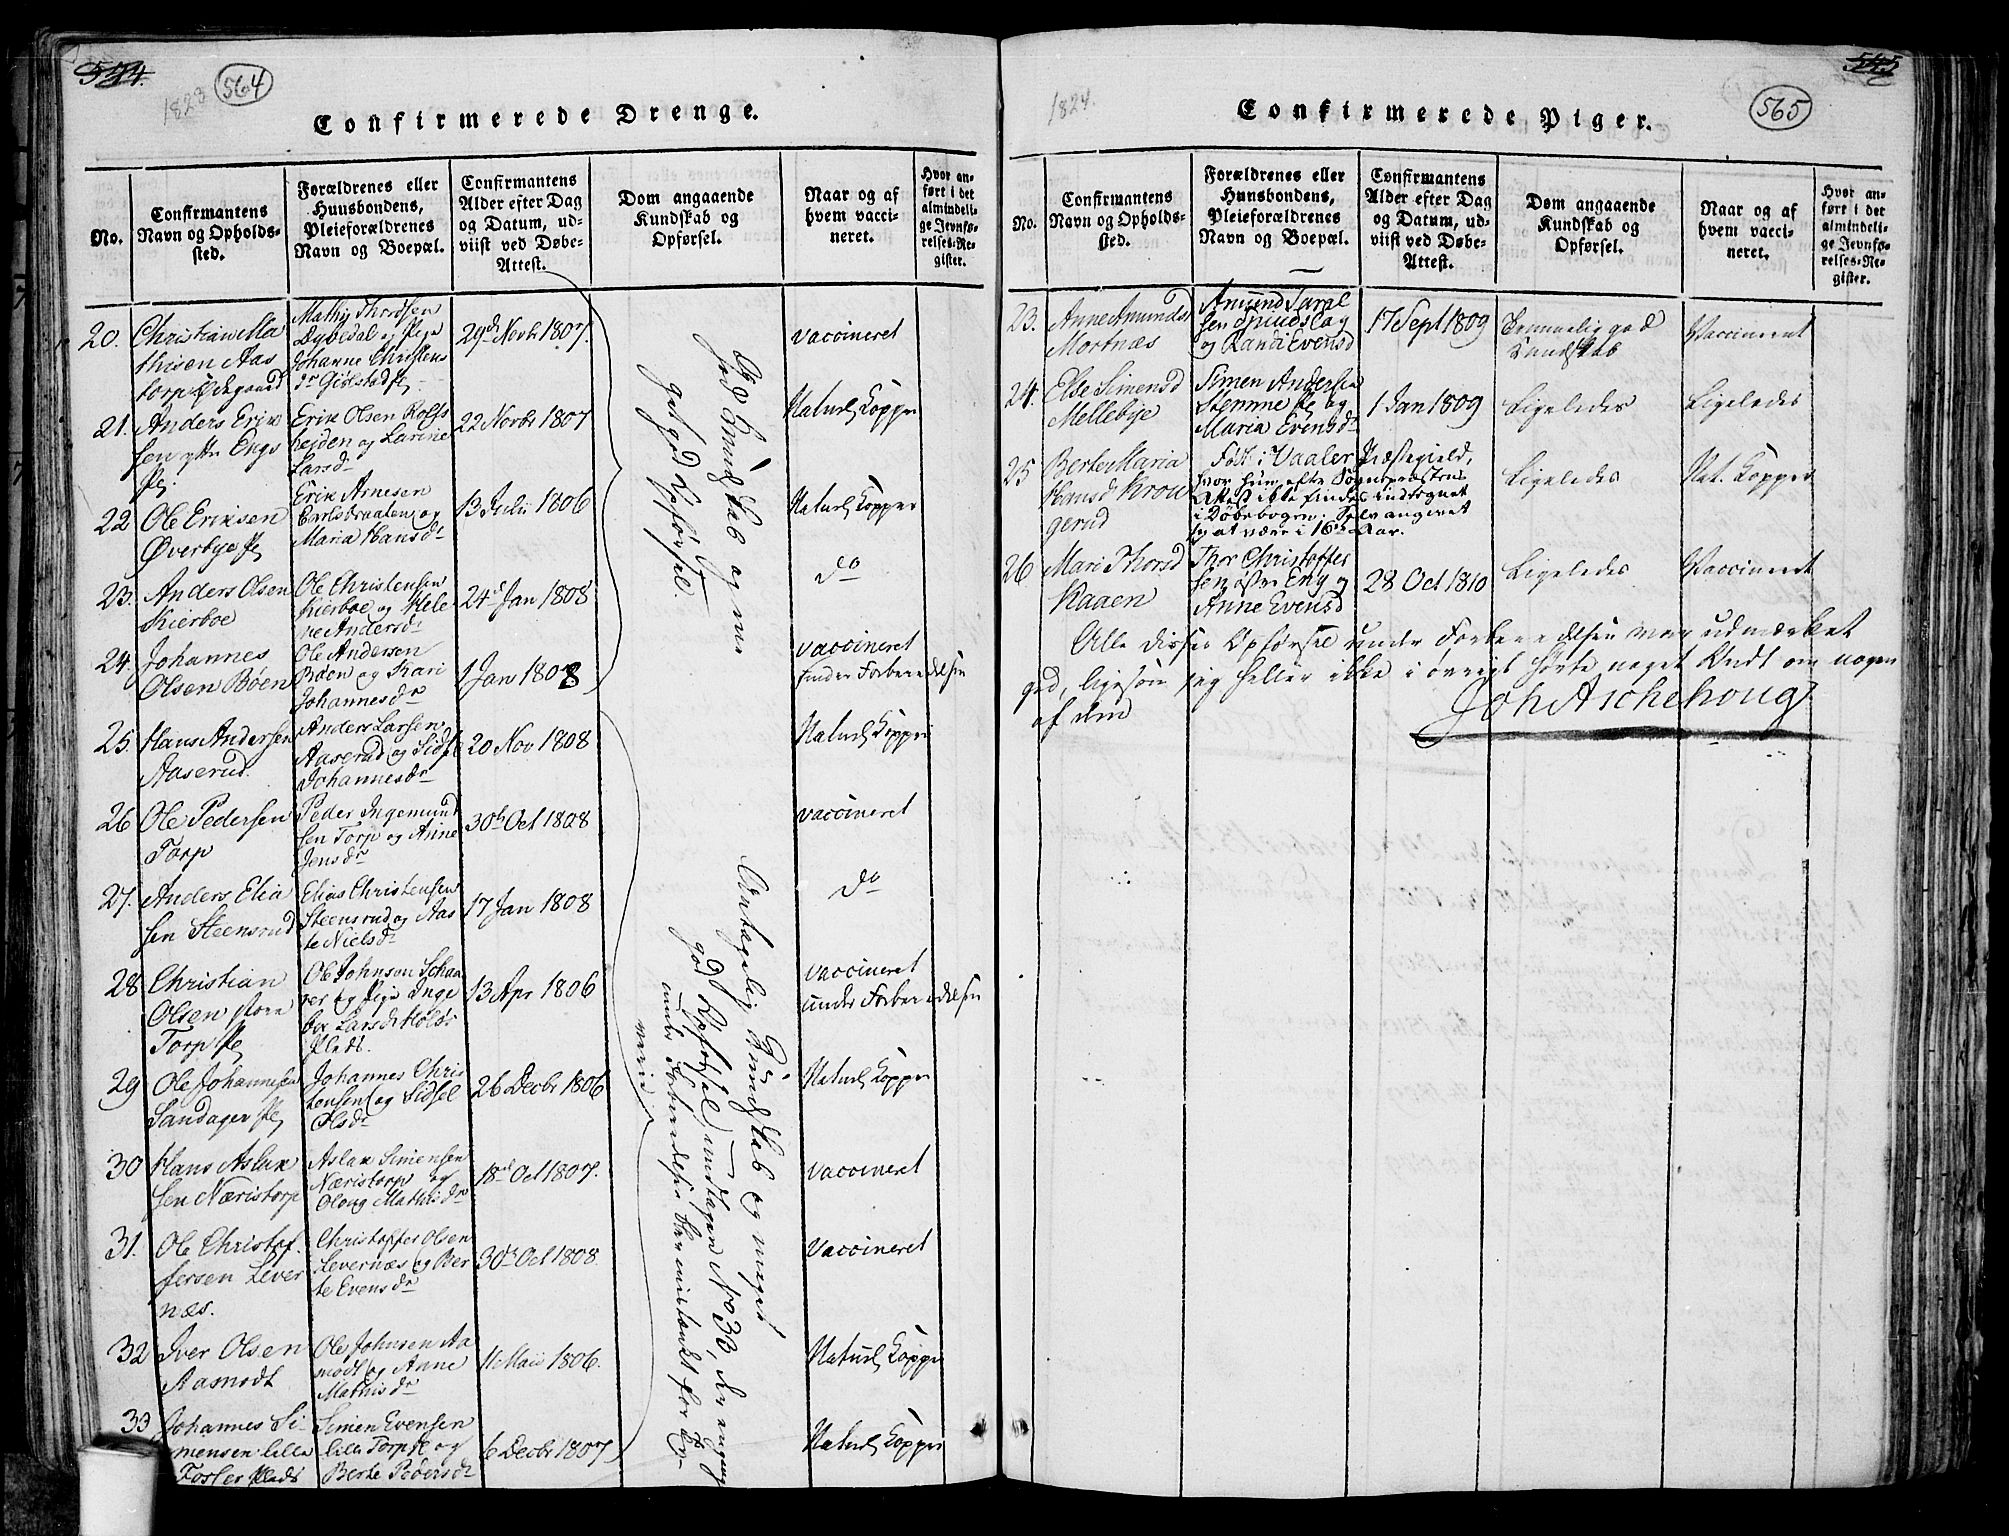 534.
1823
564
Confirmerede Drenge.
No.
Confirmantens
Navn og Opholds-
sted.
Forældrenes eller
Huusbondens,
Pleieforældrenes
Navn og Boepæl.
Confirmantens
Alder efter Dag
og Datum, ud-
viist ved Døbe-
Attest.
Dom angaaende
Kundskab og
Opførsel.
Naar og af
hvem vacci-
neret.
Hvor an-
ført i det
almindeli-
ge Jevnfø-
relses-Re-
gister.
20.
Christian Ma
thisen Aas
torp Ødegaard
Mathis Thordsen
Dybedal og Pige
Johanne Christens
dr Giølstad
29d Novbr 1807.
vaccineret
21.
Anders Erik
sen ytre Engs
Pl.
Erik Olsen Rolfs
heiden og Larine
Larsdr
22 Novbr 1807
Naturl Kopper
22
Ole Eriksen
Øverbye Pl
Erik Arnesen
Carlsbraaten og
Maria Hansdr
13 Julii 1806
Naturl Kopper
23.
Anders Olsen
Kierboe
Ole Christensen
Kierboe og Hele
ne Andersdr
24d Jan 1808
do
24.
Johannes
Olsen Bøen
Ole Andersen
Bøen og Kari
Johannesdr
1 Jan 1808
vaccineret
under Forberedelsen
God Kundskab og me
get god Opførsel.
25.
Hans Andersen
Aaserud.
Anders Larsen
Aaserud og Sidse
Johannesdr
20 Nov 1808
Naturl Kopper
26
Ole Pedersen
Torp
Peder Ingemund
sen Torp og Anne
Jensdr
30te Oct 1808
vaccineret
27.
Anders Elia
sen Steensrud
Elias Christensen
Steensrud og Aas
te Nielsdr
17 Jan 1808
do
28
Christian
Olsen store
Torp Pl
Ole Johnsen Schaa
rer og Pige Inge
bor Larsdr Holts
Plads.
13 Apr 1806
vaccineret
under Forberedelsen
29
Ole Johannesen
Sandager Pl
Johannes Chris
tensen og Sidsel
Olsdr
26 Decbr 1806
Naturl Kopper
30
Hans Aslak
sen Næristorp
Aslak Simensen
Næristorp og
Oloug Mathisdr
18de Oct 1807.
vaccineret
31.
Ole Christof
fersen Lever
næs.
Christopher Olsen
Levernæs og Ber
te Evensdr
30te Oct 1808
vaccineret
32
Iver Olsen
Aamodt
Ole Johnsen Aa
modt og Anne
Mathisdr
11 Maii 1806.
Naturl Kopper
33
Johannes Si-
mensen lille
Fosser Plads
Simen Evensen
lille Torp Pl og
Berte Pedersdr
6 Decbr 1807
Naturl Kopper
Antagelig Kundskab og meget
god Opførsel, undtagen No 33, der engang
under Forberedelsen blev mistænkt for
555
1824.
565
Confirmerede Piger.
No.
Confirmantens
Navn og Opholds-
sted.
Forældrenes eller
Huusbondens,
Pleieforældrenes
Navn og Boepæl.
Confirmantens
Alder efter Dag
og Datum, ud-
viist ved Døbe-
Attest.
Dom angaaende
Kundskab og
Opførsel.
Naar og af
hvem vacci-
neret.
Hvor an-
ført i det
almindeli-
ge Jevnfø-
relses-Re-
gister.
23.
Anne Amunds
Mortnæs
Amund Taral
sen Grudslag
og Randi Evensd
17 Sept 1809
Temmelig god
Kundskab
Vaccineret
24.
Else Simensd
Mellebye
Simen Andersen
Stemme Pl og
Maria Evensdr
1 Jan 1809
Ligeledes
Ligeledes
25
Berte Maria
Hansd Krou
gerud
Født i Vaaler Præstegield,
hvor hun efter Sognepræstens
Attest ikke findes indtegnet
i Døbebogen. Selv angivet
sig at være i 16de Aar.
Ligeledes
Nat. Kopper
26
Mari Thorsd
Kaaen
Thor Christoffer
sen østre Eng og
Anne Evensd
28 Oct 1810
Ligeledes
Vaccineret
Alle disses Opførsel under Forberedelsen var udmærket
god, ligesom jeg heller ikke i øvrigt hørte noget Ondt om nogen
af dem
Joh Aschehoug